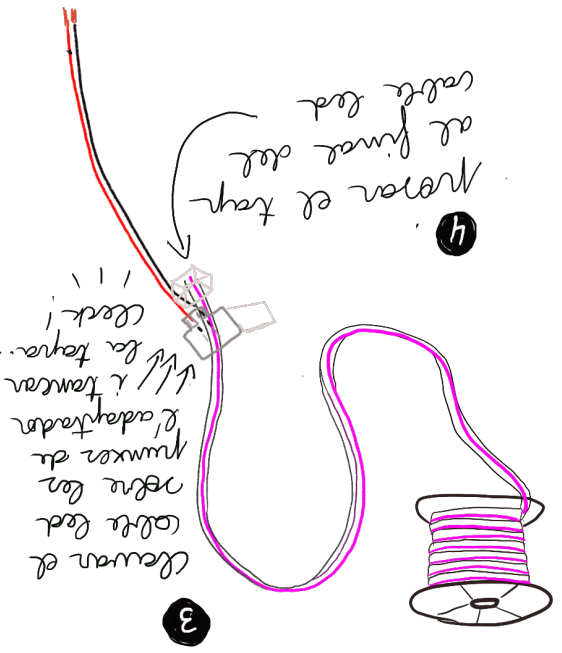 3
clavar el
cable led
sobre les
punxes de
l'adaptador
i tancar
la tapa.
cleck!
4
posar el tap
al final del
cable led